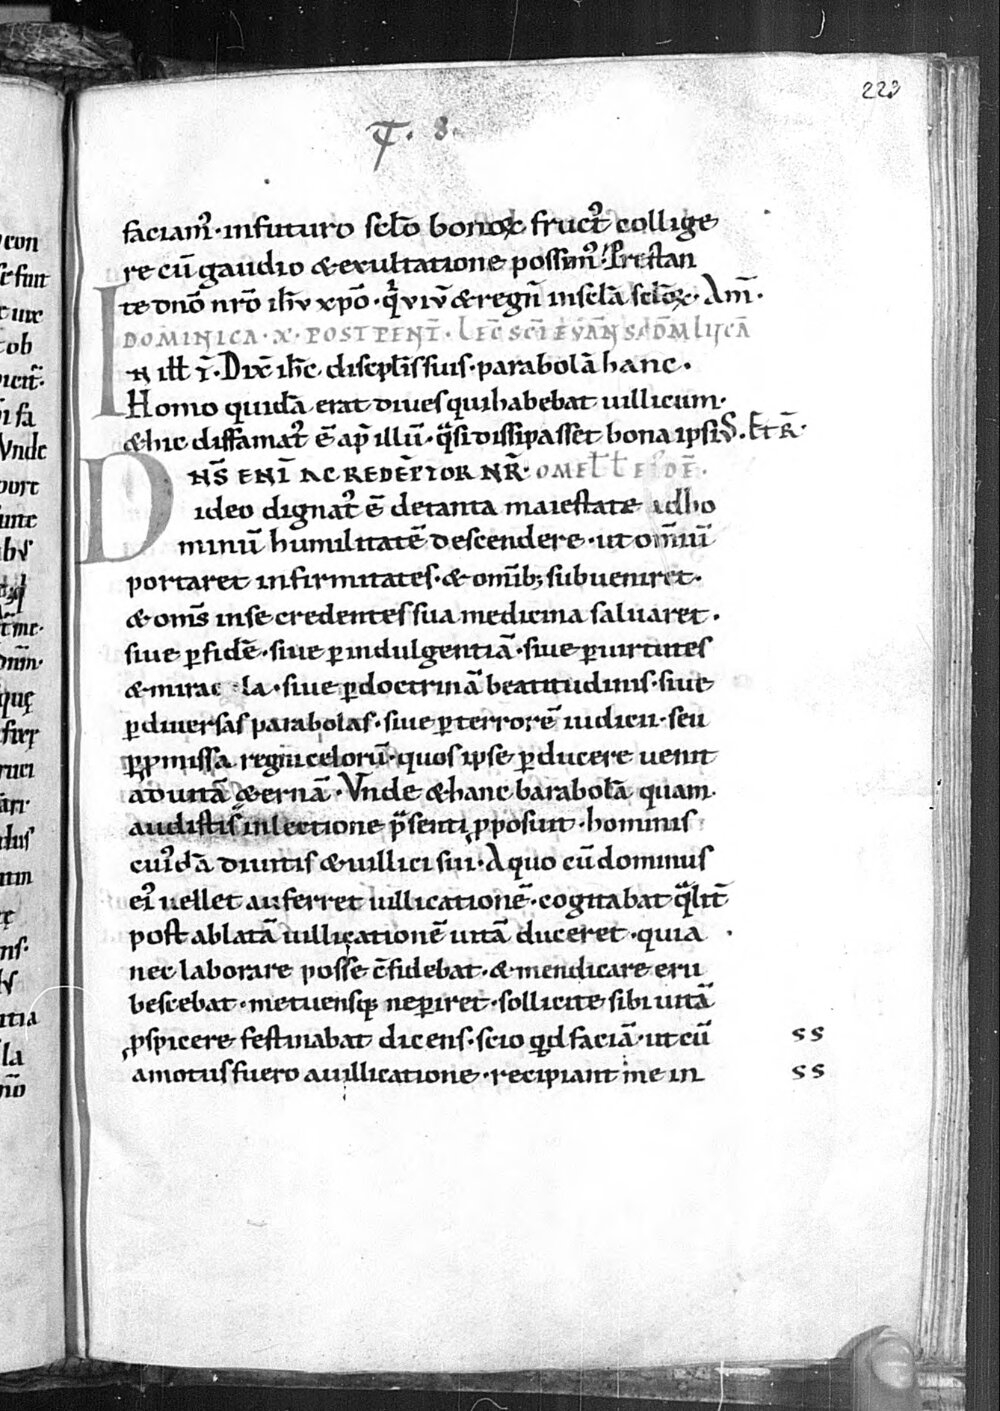 223
T. 8.
faciam᷒· in futuro sclo bonoꝝ fruct᷒ collige
re cū gaudio & exultatione possim᷒. Prestan
te dnō nrō ihū xpō· q̇ viv & regn̄ in scla scloꝝ· Am̄.
DOMINICA· X· POST PENT̄· LEC̄ SCĪ EVAN̄ S̄ADM̄ LVCĀ
IN iłł t̄· Dix̄ ihc̄ discplīs suis· parabolā hanc·
Homo quidā erat diues qui habebat uillicum·
& hic diffamat᷒ ē ap̄ illū· q̄si dissipasset bona ipsi᷒. Et R̄·
DN̄S ENĪ AC REDEP̄TOR NR̄·
ideo dignat᷒ ē de tanta maiestate ad ho
minū humilitatē descendere· ut omniū
portaret infirmitates· & omib; subueniret·
& om̄s in se credentes sua medicina saluaret·
siue ꝑ fidē· siue ꝑ indulgentiā· siue ꝑ uirtutes
& mirac la· siue ꝑ doctrinā beatitudinis· siue
ꝑ diuersas parabolas· siue ꝑ terrorē iudicii· seu
ꝑ ꝓmissa regni celorū· quos ipse ꝑducere uenit
ad uitā & ernā· Vnde & hanc barabolā quam
audistis in lectione p̄senti ꝓposuit· hominis
cui᷒dā diuitis & uillici sui· A quo cū dominus
ei᷒ uellet auferret uillicationē· cogitabat q̄lit̄
post ablatā uillicationē uitā duceret· quia
nec laborare posse c̄fidebat· & mendicare eru
bescebat· metuensq; ne ꝑiret· sollicite sibi uitā
ꝓspicere festinabat dicens· scio qd faciā· ut cū
amotus fuero a uillicatione· recipiant me in
ss
ss